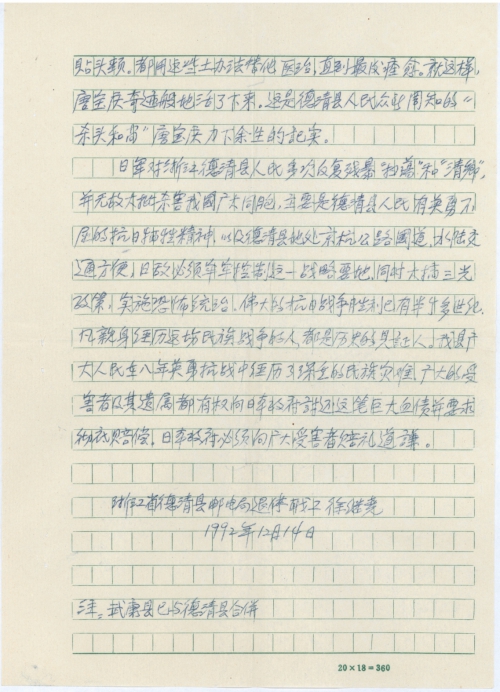 贴头颗。都用这些土办法替他医治，直到最后痊愈。就这样，
唐宝庆奇迹般地活了下来。这是德清县人民众所周知的“
杀头和尚”唐宝庆刀下余生的记实。
日军对浙江德清县人民多次反复残暴“扫荡”和“清乡”，
并无故大批杀害我国广大同胞，主要是德清县人民有英勇不
屈的抗日牺牲精神，以及德清县地处京杭公路国道，水陆交
通方便，日敌必须牢牢控制这一战略要地，同时大搞三光
政策，实施恐怖统治。伟大的抗日战争胜利已有半个多世纪，
凡亲身经历这场民族战争的人，都是历史的见証人。我县广
大人民在八年英勇抗战中经历了深重的民族灾难，广大的受
害者及其遗属都有权向日本政府诉还这笔巨大血债并要求
彻底赔偿。日本政府必须向广大受害者赔礼道謙。
浙江省德清县邮电局退休职工 徐继尧
1992年12月14日
注：武康县已与德清县合併
20×18=360